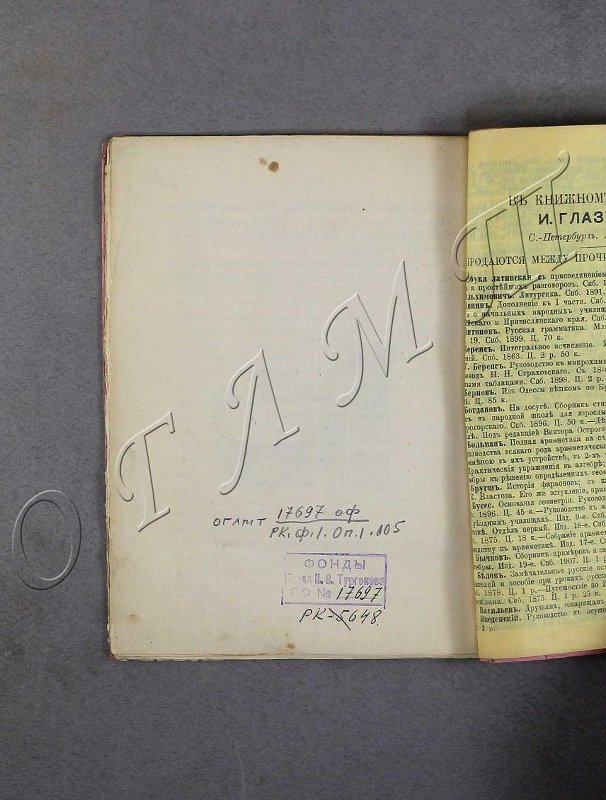 ОГАМТ 17697 оф
РК.ф.1.Оп.1.105
ФОНДЫ
И. С. Тургенева
№ 17697
РК-5648
ВЪ КНИЖНОМ
И. ГЛАЗ
С.-Петербургъ.
ПРОДАЮТСЯ МЕЖДУ ПРОЧИ
латинская съ присоединеніем
и простѣйшихъ разговоровъ. Спб. 1
Литургика. Спб. 1891.
Дополненіе къ 1 части. Спб.
начальныхъ народныхъ училищ
и Привислянскаго края. Спб.
Русская грамматика. Мл
19. Спб. 1899. Ц. 70 к.
Беренсъ. Интегральное исчисленіе.
Спб. 1863. Ц. 2 р. 50 к.
Г. Беренсъ. Руководство къ микрохими
Н. Н. Страховскаго. Съ 18-ю
таблицами. Спб. 1898. Ц. 2 р.
Берновъ. Изъ Одессы пѣшкомъ по
Ц. 85 к.
Богдановъ. На досугѣ. Сборникъ ст
въ народной школѣ для взрослы
Спб. 1896. Ц. 50 к.—Дѣ
Подъ редакціей Виктора Острог
Больманъ. Полная ариѳметика на сч
всякаго рода ариѳметическ
въ ихъ устройствѣ, въ 2-хъ
Практическія упражненія въ алгебрѣ;
къ рѣшенію опредѣленныхъ геом
Бругшъ. Исторія фараоновъ; съ
Г. Властова. Его же вступленіе, прим
Буссе. Основанія геометріи. Спб.
1896. Ц. 45 к.—Руководство къ а
уѣздныхъ училищахъ. Изд. 9-е. Спб.
Отдѣлъ первый. Изд. 13-е. Спб.
1875. Ц. 18 к.—Собраніе ариѳмет
къ ариѳметикѣ. Изд. 17-е.
Бычковъ. Сборникъ примѣровъ и за
Изд. 19-е. Спб. 1907. Ц. 1 р.
Бѣловъ. Замѣчательные русскіе
и пособіе при урокахъ русск
1878. Ц. 1 р.—Путешествіе по
Спб. 1873. Ц. 1 р. 25 к.
Васильевъ. Друзьямъ, товарищам
Введенскій. Руководство къ
1 р.
ОГЛМТ